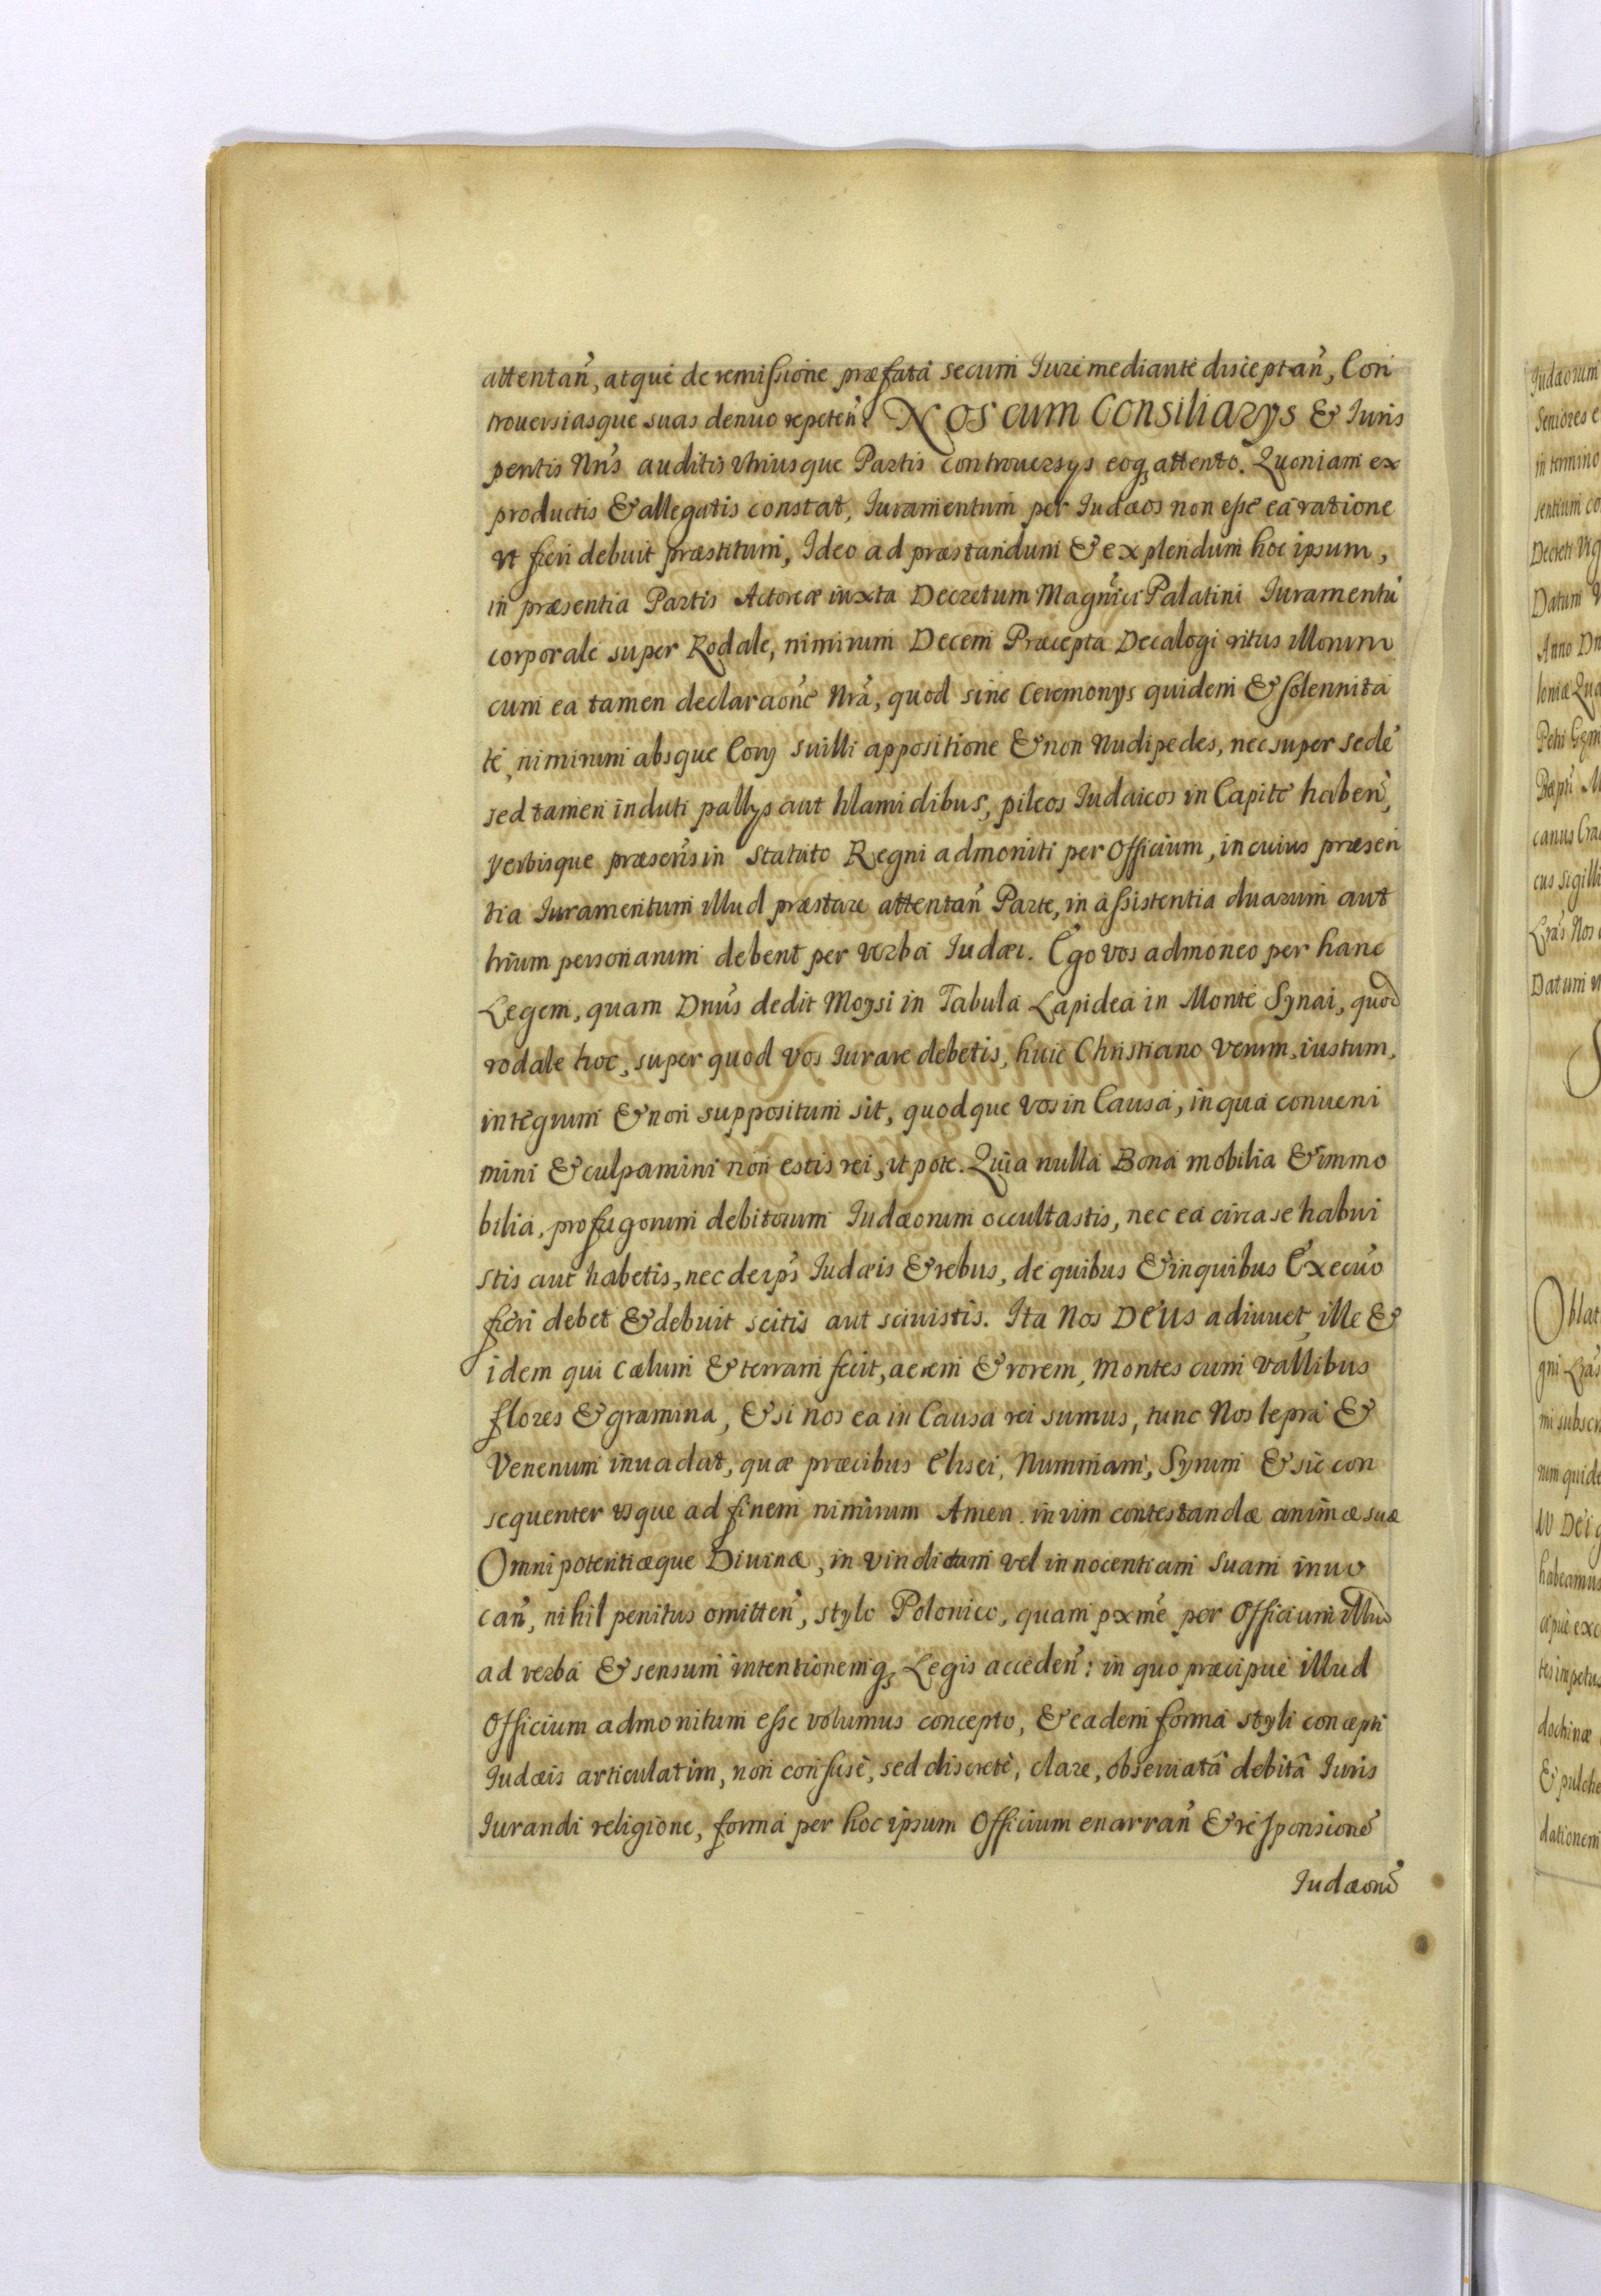 attentan̄, atque de remissione præfata secum Iure mediante disceptan̄, Con
trouersiasque suas denuo repeten̄: Nos cum Consiliarys & Iuris
peritis Nr̄is auditis vtriusque Partis controuersys eoq₃ attento. Quoniam ex
productis & allegatis constat, Iuramentum per Iudæos non esse ea ratione
vt fieri debuit præstitum, Ideo ad præstandum & explendum hoc ipsum,
in præsentia Partis Actoreæ iuxta Decretum Magn̄ici Palatini Iuramentū
corporale super Rodale, nimirum Decem Præcepta Decalogi ritus illorum
cum ea tamen declarao̅ne Nr̄a, quod sine Ceremonys quidem & solennita
te, nimirum absque Cory suilli appositione & non Nudipedes, nec super sede
sed tamen induti pallys aut hlamidibus, pileos Iudaicos in Capite haben̄,
verbisque præscr̄is in Statuto Regni admoniti per Officium, in cuius præsen
tia Iuramentum illud præstare attentan̄ Parte, in assistentia duarum aut
trium personarum debent per verba Iudæi. Ego vos admoneo per hanc
Legem, quam Dn̄us dedit Moysi in Tabula Lapidea in Monte Synai, quod
rodale hoc, super quod vos Iurare debetis, huic Christiano verum, iustum,
integrum & non suppositum sit, quodque vos in Causa, in qua conueni
mini & culpamini non estis rei, vt pote. Quia nulla Bona mobilia & immo
bilia, profugorum debitorum Iudæorum occultastis, nec ea circa se habui
stis aut habetis, nec de ip̄s Iudæis & rebus, de quibus & in quibus Execuo̅
fieri debet & debuit scitis aut sciuistis. Ita Nos DEUS adiuuet, ille &
idem qui Cælum & terram fecit, aerem & rorem, montes cum vallibus
flores & gramina, & si nos ea in Causa rei sumus, tunc Nos lepra &
Venenum inuadat, quæ præcibus Elisei, Nummam, Syrum & sic con
sequenter vsque ad finem nimirum Amen. in vim contestandæ animæ suæ
Omnipotentiæque Diuinæ, in vindictam vel innocentiam suam inuo
can̄, nihil penitus omitten̄, stylo Polonico, quam pxme̅ per Officium illud
ad verba & sensum intentionemq₃ Legis acceden̄: in quo præcipue illud
Officium admonitum esse volumus concepto, & eadem forma styli concepti
Iudæis articulatim, non confusè, sed discretè, clare, obseruatâ debitâ Iuris
Iurandi religione, forma per hoc ipsum Officium enarran̄ & responsione
Iudæorū